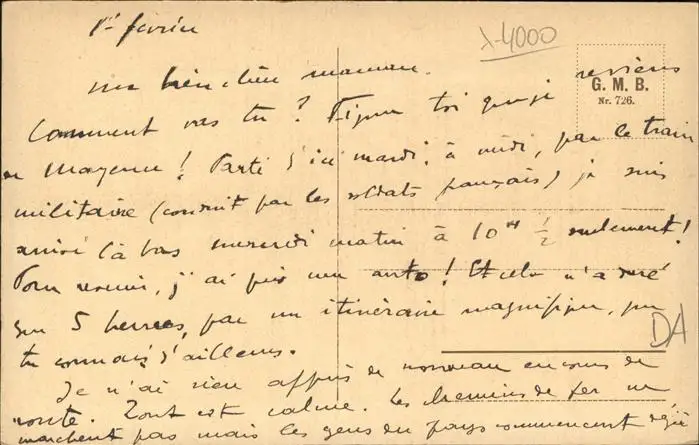 1er février
λ-4000
ma bien chère maman.
G. M. B.
Nr. 726.
Comment vas tu ? Figure toi que je reviens
de Mayence ! Parti d'ici mardi, à midi, par le train
militaire (conduit par les soldats français) je suis
arrivé là bas mercredi matin à 10 H ½ seulement !
Pour revenir, j'ai pris une auto ! Et cela n'a duré
que 5 heures, par un itinéraire magnifique, que
tu connais d'ailleurs.
DA
Je n'ai rien appris de nouveau en cours de
route. Tout est calme. Les chemins de fer ne
marchent pas mais les gens du pays commencent déjà